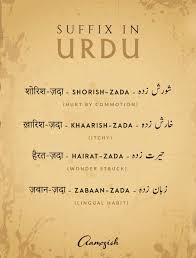 SUFFIX IN
URDU
शोरिश-ज़दा - SHORISH-ZADA - شورش زدہ
(HURT BY COMMOTION)
ख़ारिश-ज़दा - KHAARISH-ZADA - خارش زدہ
(ITCHY)
हैरत-ज़दा - HAIRAT-ZADA - حیرت زدہ
(WONDER STRUCK)
ज़बान-ज़दा - ZABAAN-ZADA - زبان زدہ
(LINGUAL HABIT)
Aamozish